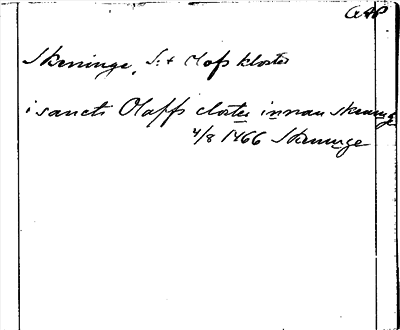 GAP
Skeninge, S:t Olofs kloster
i sancti Olaffs closter innan skeninge
4/8 1466 Skeninge